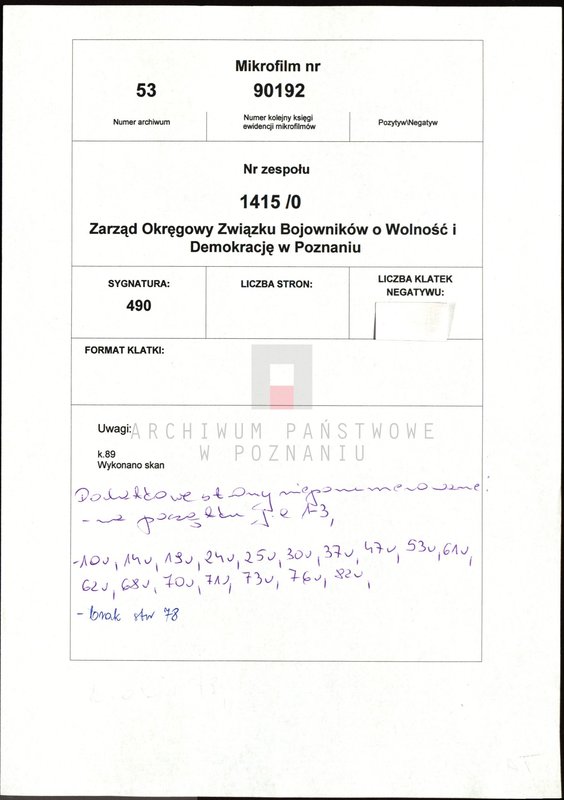 Mikrofilm nr
53
90192
Numer archiwum
Numer kolejny księgi
ewidencji mikrofilmów
Pozytyw\Negatyw
Nr zespołu
1415 /0
Zarząd Okręgowy Związku Bojowników o Wolność i
Demokrację w Poznaniu
SYGNATURA:
490
LICZBA STRON:
LICZBA KLATEK
NEGATYWU:
FORMAT KLATKI:
Uwagi:
ARCHIWUM PAŃSTWOWE
W POZNANIU
k.89
Wykonano skan
Dodatkowe strony nieponumerowane:
- na początku j.a 1-3,
-10v, 14v, 19v, 24v, 25v, 30v, 37v, 47v, 53v, 61v,
62v, 68v, 70v, 71v, 73v, 76v, 82v,
- brak str 78